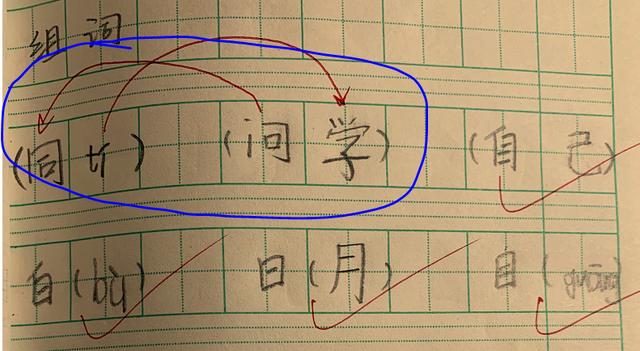 组 词
(同 tí) (问 学) (自 己)
白(bù) 日(月) 目(guāng)